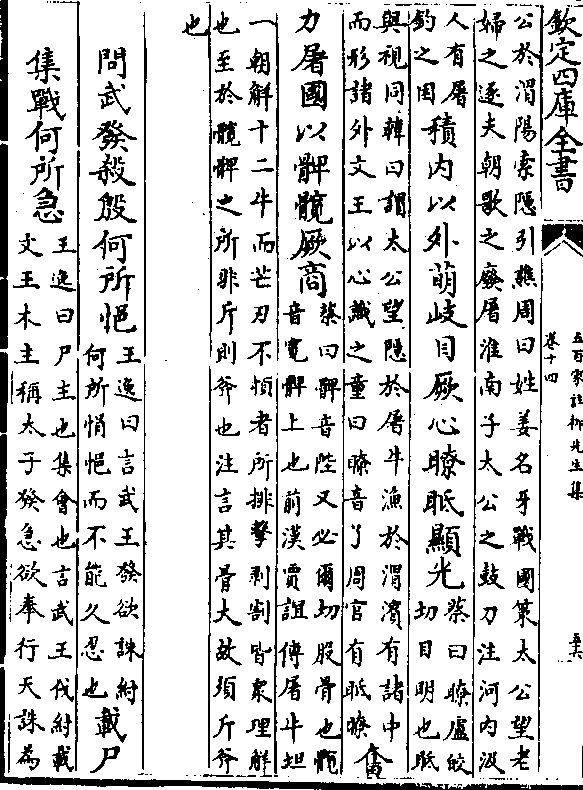 欽定四庫全書
五百家註柳先生集
卷十四
公於渭陽索隱引譙周曰姓姜名牙戰國策太公望老
婦之逐夫朝歌之廢屠淮南子太公之鼓刀注河內汲
人有屠
釣之困
積內以外萌岐目厥心瞭眂顯光
蔡曰瞭盧皎
切目明也眂
與視同韓曰謂太公望隱於屠牛漁於渭濱有諸中
而形諸外文王以心識之童曰瞭音了周官有眂瞭
奮
力屠國以髀髖厥商
蔡曰髀音陛又必爾切股骨也髖
音寛髀上也前漢賈誼傳屠牛坦
一朝解十二牛而芒刃不頓者所排擊剥割皆衆理解
也至於髖髀之所非斤則斧也注言其骨大故須斤斧
也
問武發殺殷何所悒
王逸曰言武王發欲誅紂
何所悁悒而不能久忍也
載尸
集戰何所急
王逸曰尸主也集會也言武王伐紂載
文王木主稱太子發急欲奉行天誅為